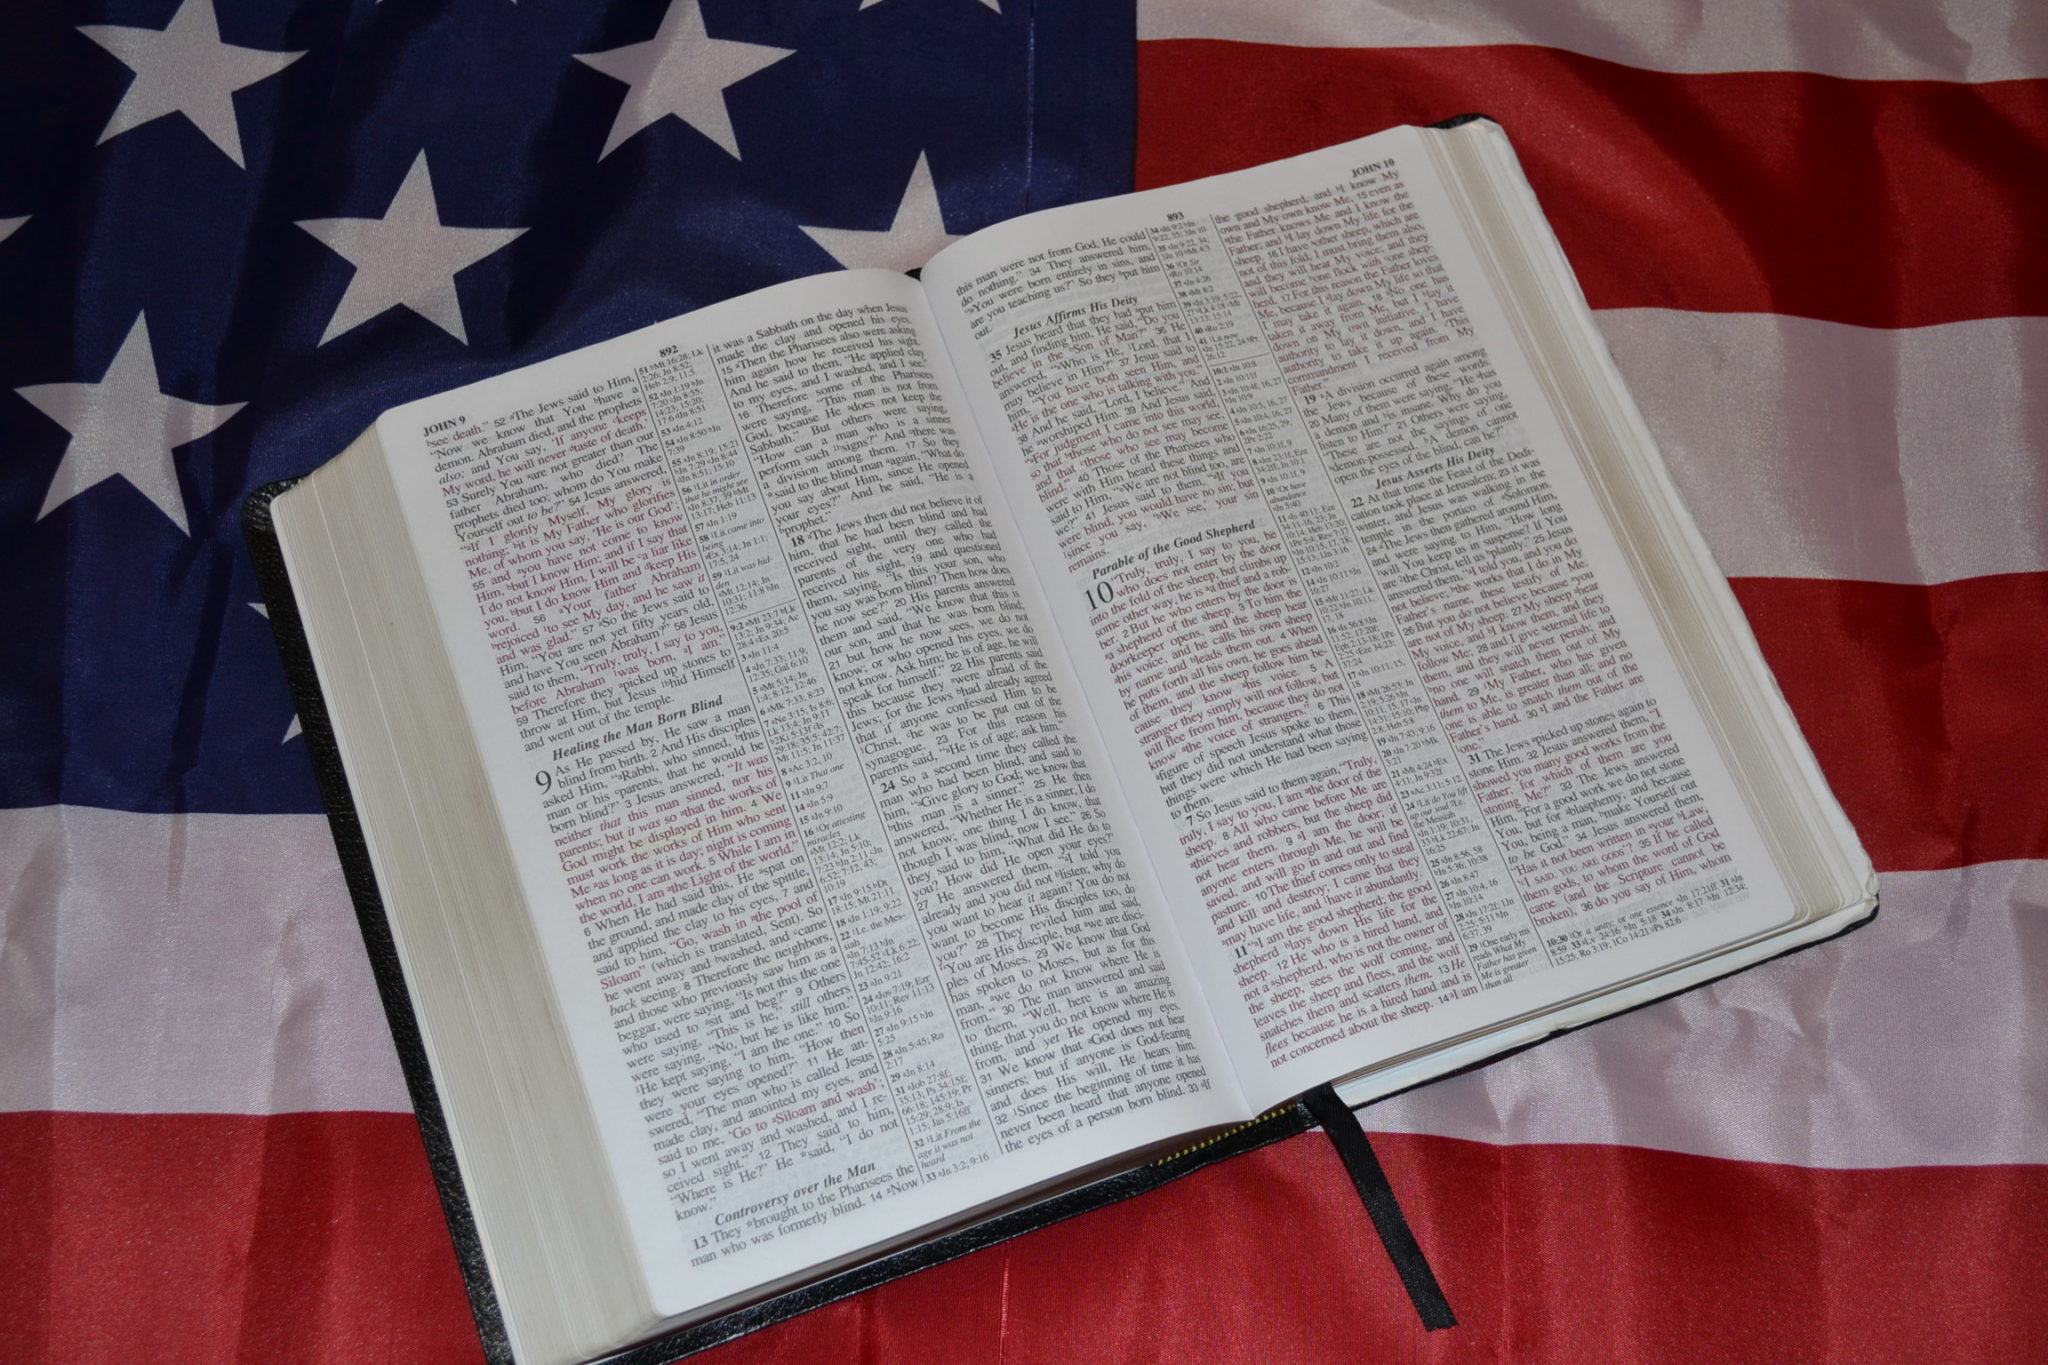 JOHN 9
892
see death." 52 The Jews said to Him,
"Now we know that You have a
demon. Abraham died, and the prophets
also; and You say, 'If anyone keeps
My word, he will never taste of death.'
53 Surely You are not greater than our
father Abraham, who died? The
prophets died too; whom do You make
Yourself out to be?" 54 Jesus answered,
"If I glorify Myself, My glory is
nothing; it is My Father who glorifies
Me, of whom you say, 'He is our God';
55 and you have not come to know
Him, but I know Him; and if I say that
I do not know Him, I will be a liar like
you, but I do know Him and keep His
word. 56 Your father Abraham
rejoiced to see My day, and he saw it
and was glad." 57 So the Jews said to
Him, "You are not yet fifty years old,
and have You seen Abraham?" 58 Jesus
said to them, "Truly, truly, I say to you,
before Abraham was born, I am."
59 Therefore they picked up stones to
throw at Him, but Jesus hid Himself
and went out of the temple.
Healing the Man Born Blind
9 As He passed by, He saw a man
blind from birth. 2 And His disciples
asked Him, "Rabbi, who sinned, this
man or his parents, that he would be
born blind?" 3 Jesus answered, "It was
neither that this man sinned, nor his
parents; but it was so that the works of
God might be displayed in him. 4 We
must work the works of Him who sent
Me as long as it is day; night is coming
when no one can work. 5 While I am in
the world, I am the Light of the world."
6 When He had said this, He spat on
the ground, and made clay of the spittle,
and applied the clay to his eyes, 7 and
said to him, "Go, wash in the pool of
Siloam" (which is translated, Sent). So
he went away and washed, and came
back seeing. 8 Therefore the neighbors,
and those who previously saw him as a
beggar, were saying, "Is not this the one
who used to sit and beg?" 9 Others
were saying, "This is he," still others
were saying, "No, but he is like him."
He kept saying, "I am the one." 10 So
they were saying to him, "How then
were your eyes opened?" 11 He an-
swered, "The man who is called Jesus
made clay, and anointed my eyes, and
said to me, 'Go to Siloam and wash';
so I went away and washed, and I re-
ceived sight." 12 They said to him,
"Where is He?" He said, "I do not
know."
Controversy over the Man
13 They brought to the Pharisees the
man who was formerly blind. 14 Now
it was a Sabbath on the day when Jesus
made the clay and opened his eyes.
15 Then the Pharisees also were asking
him again how he received his sight.
And he said to them, "He applied clay
to my eyes, and I washed, and I see."
16 Therefore some of the Pharisees
were saying, "This man is not from
God, because He does not keep the
Sabbath." But others were saying,
"How can a man who is a sinner
perform such signs?" And there was
a division among them. 17 So they
said to the blind man again, "What do
you say about Him, since He opened
your eyes?" And he said, "He is a
prophet."
18 The Jews then did not believe it of
him, that he had been blind and had
received sight, until they called the
parents of the very one who had
received his sight, 19 and questioned
them, saying, "Is this your son, who
you say was born blind? Then how does
he now see?" 20 His parents answered
them and said, "We know that this is
our son, and that he was born blind;
21 but how he now sees, we do not
know; or who opened his eyes, we do
not know. Ask him; he is of age, he will
speak for himself." 22 His parents said
this because they were afraid of the
Jews; for the Jews had already agreed
that if anyone confessed Him to be
Christ, he was to be put out of the
synagogue. 23 For this reason his
parents said, "He is of age; ask him."
24 So a second time they called the
man who had been blind, and said to
him, "Give glory to God; we know that
this man is a sinner." 25 He then
answered, "Whether He is a sinner, I do
not know; one thing I do know, that
though I was blind, now I see." 26 So
they said to him, "What did He do to
you? How did He open your eyes?"
27 He answered them, "I told you
already and you did not listen; why do
you want to hear it again? You do not
want to become His disciples too, do
you?" 28 They reviled him and said,
"You are His disciple, but we are disci-
ples of Moses. 29 We know that God
has spoken to Moses, but as for this
man, we do not know where He is
from." 30 The man answered and said
to them, "Well, here is an amazing
thing, that you do not know where He is
from, and yet He opened my eyes.
31 We know that God does not hear
sinners; but if anyone is God-fearing
and does His will, He hears him.
32 Since the beginning of time it has
never been heard that anyone opened
the eyes of a person born blind. 33 If
893
JOHN 10
this man were not from God, He could
do nothing." 34 They answered him,
"You were born entirely in sins, and
are you teaching us?" So they put him
out.
Jesus Affirms His Deity
35 Jesus heard that they had put him
out, and finding him, He said, "Do you
believe in the Son of Man?" 36 He
answered, "Who is He, Lord, that I
may believe in Him?" 37 Jesus said to
him, "You have both seen Him, and
He is the one who is talking with you."
38 And he said, "Lord, I believe." And
he worshiped Him. 39 And Jesus said,
"For judgment I came into this world,
so that those who do not see may see,
and that those who see may become
blind." 40 Those of the Pharisees who
were with Him heard these things and
said to Him, "We are not blind too, are
we?" 41 Jesus said to them, "If you
were blind, you would have no sin; but
since you say, 'We see,' your sin
remains.
Parable of the Good Shepherd
10 "Truly, truly, I say to you, he
who does not enter by the door
into the fold of the sheep, but climbs up
some other way, he is a thief and a rob-
ber. 2 But he who enters by the door is
a shepherd of the sheep. 3 To him the
doorkeeper opens, and the sheep hear
his voice, and he calls his own sheep
by name and leads them out. 4 When
he puts forth all his own, he goes ahead
of them, and the sheep follow him be-
cause they know his voice. 5 A
stranger they simply will not follow, but
will flee from him, because they do not
know the voice of strangers." 6 This
figure of speech Jesus spoke to them,
but they did not understand what those
things were which He had been saying
to them.
7 So Jesus said to them again, "Truly,
truly, I say to you, I am the door of the
sheep. 8 All who came before Me are
thieves and robbers, but the sheep did
not hear them. 9 I am the door; if
anyone enters through Me, he will be
saved, and will go in and out and find
pasture. 10 The thief comes only to steal
and kill and destroy; I came that they
may have life, and have it abundantly.
11 "I am the good shepherd; the good
shepherd lays down His life for the
sheep. 12 He who is a hired hand, and
not a shepherd, who is not the owner of
the sheep, sees the wolf coming, and
leaves the sheep and flees, and the wolf
snatches them and scatters them. 13 He
flees because he is a hired hand and is
not concerned about the sheep. 14 I am
the good shepherd, and I know My
own and My own know Me, 15 even as
the Father knows Me and I know the
Father; and I lay down My life for the
sheep. 16 I have other sheep, which are
not of this fold; I must bring them also,
and they will hear My voice; and they
will become one flock with one shep-
herd. 17 For this reason the Father loves
Me, because I lay down My life so that
I may take it again. 18 No one has
taken it away from Me, but I lay it
down on My own initiative. I have
authority to lay it down, and I have
authority to take it up again. This
commandment I received from My
Father."
19 A division occurred again among
the Jews because of these words.
20 Many of them were saying, "He has
a demon and is insane. Why do you
listen to Him?" 21 Others were saying,
"These are not the sayings of one
demon-possessed. A demon cannot
open the eyes of the blind, can he?"
Jesus Asserts His Deity
22 At that time the Feast of the Dedi-
cation took place at Jerusalem; 23 it was
winter, and Jesus was walking in the
temple in the portico of Solomon.
24 The Jews then gathered around Him,
and were saying to Him, "How long
will You keep us in suspense? If You
are the Christ, tell us plainly." 25 Jesus
answered them, "I told you, and you do
not believe; the works that I do in My
Father's name, these testify of Me.
26 But you do not believe because you
are not of My sheep. 27 My sheep hear
My voice, and I know them, and they
follow Me; 28 and I give eternal life to
them, and they will never perish; and
no one will snatch them out of My
hand. 29 My Father, who has given
them to Me, is greater than all; and no
one is able to snatch them out of the
Father's hand. 30 I and the Father are
one."
31 The Jews picked up stones again to
stone Him. 32 Jesus answered them, "I
showed you many good works from the
Father; for which of them are you
stoning Me?" 33 The Jews answered
Him, "For a good work we do not stone
You, but for blasphemy; and because
You, being a man, make Yourself out
to be God." 34 Jesus answered them,
"Has it not been written in your Law,
'I SAID, YOU ARE GODS'? 35 If he called
them gods, to whom the word of God
came (and the Scripture cannot be
broken), 36 do you say of Him, whom